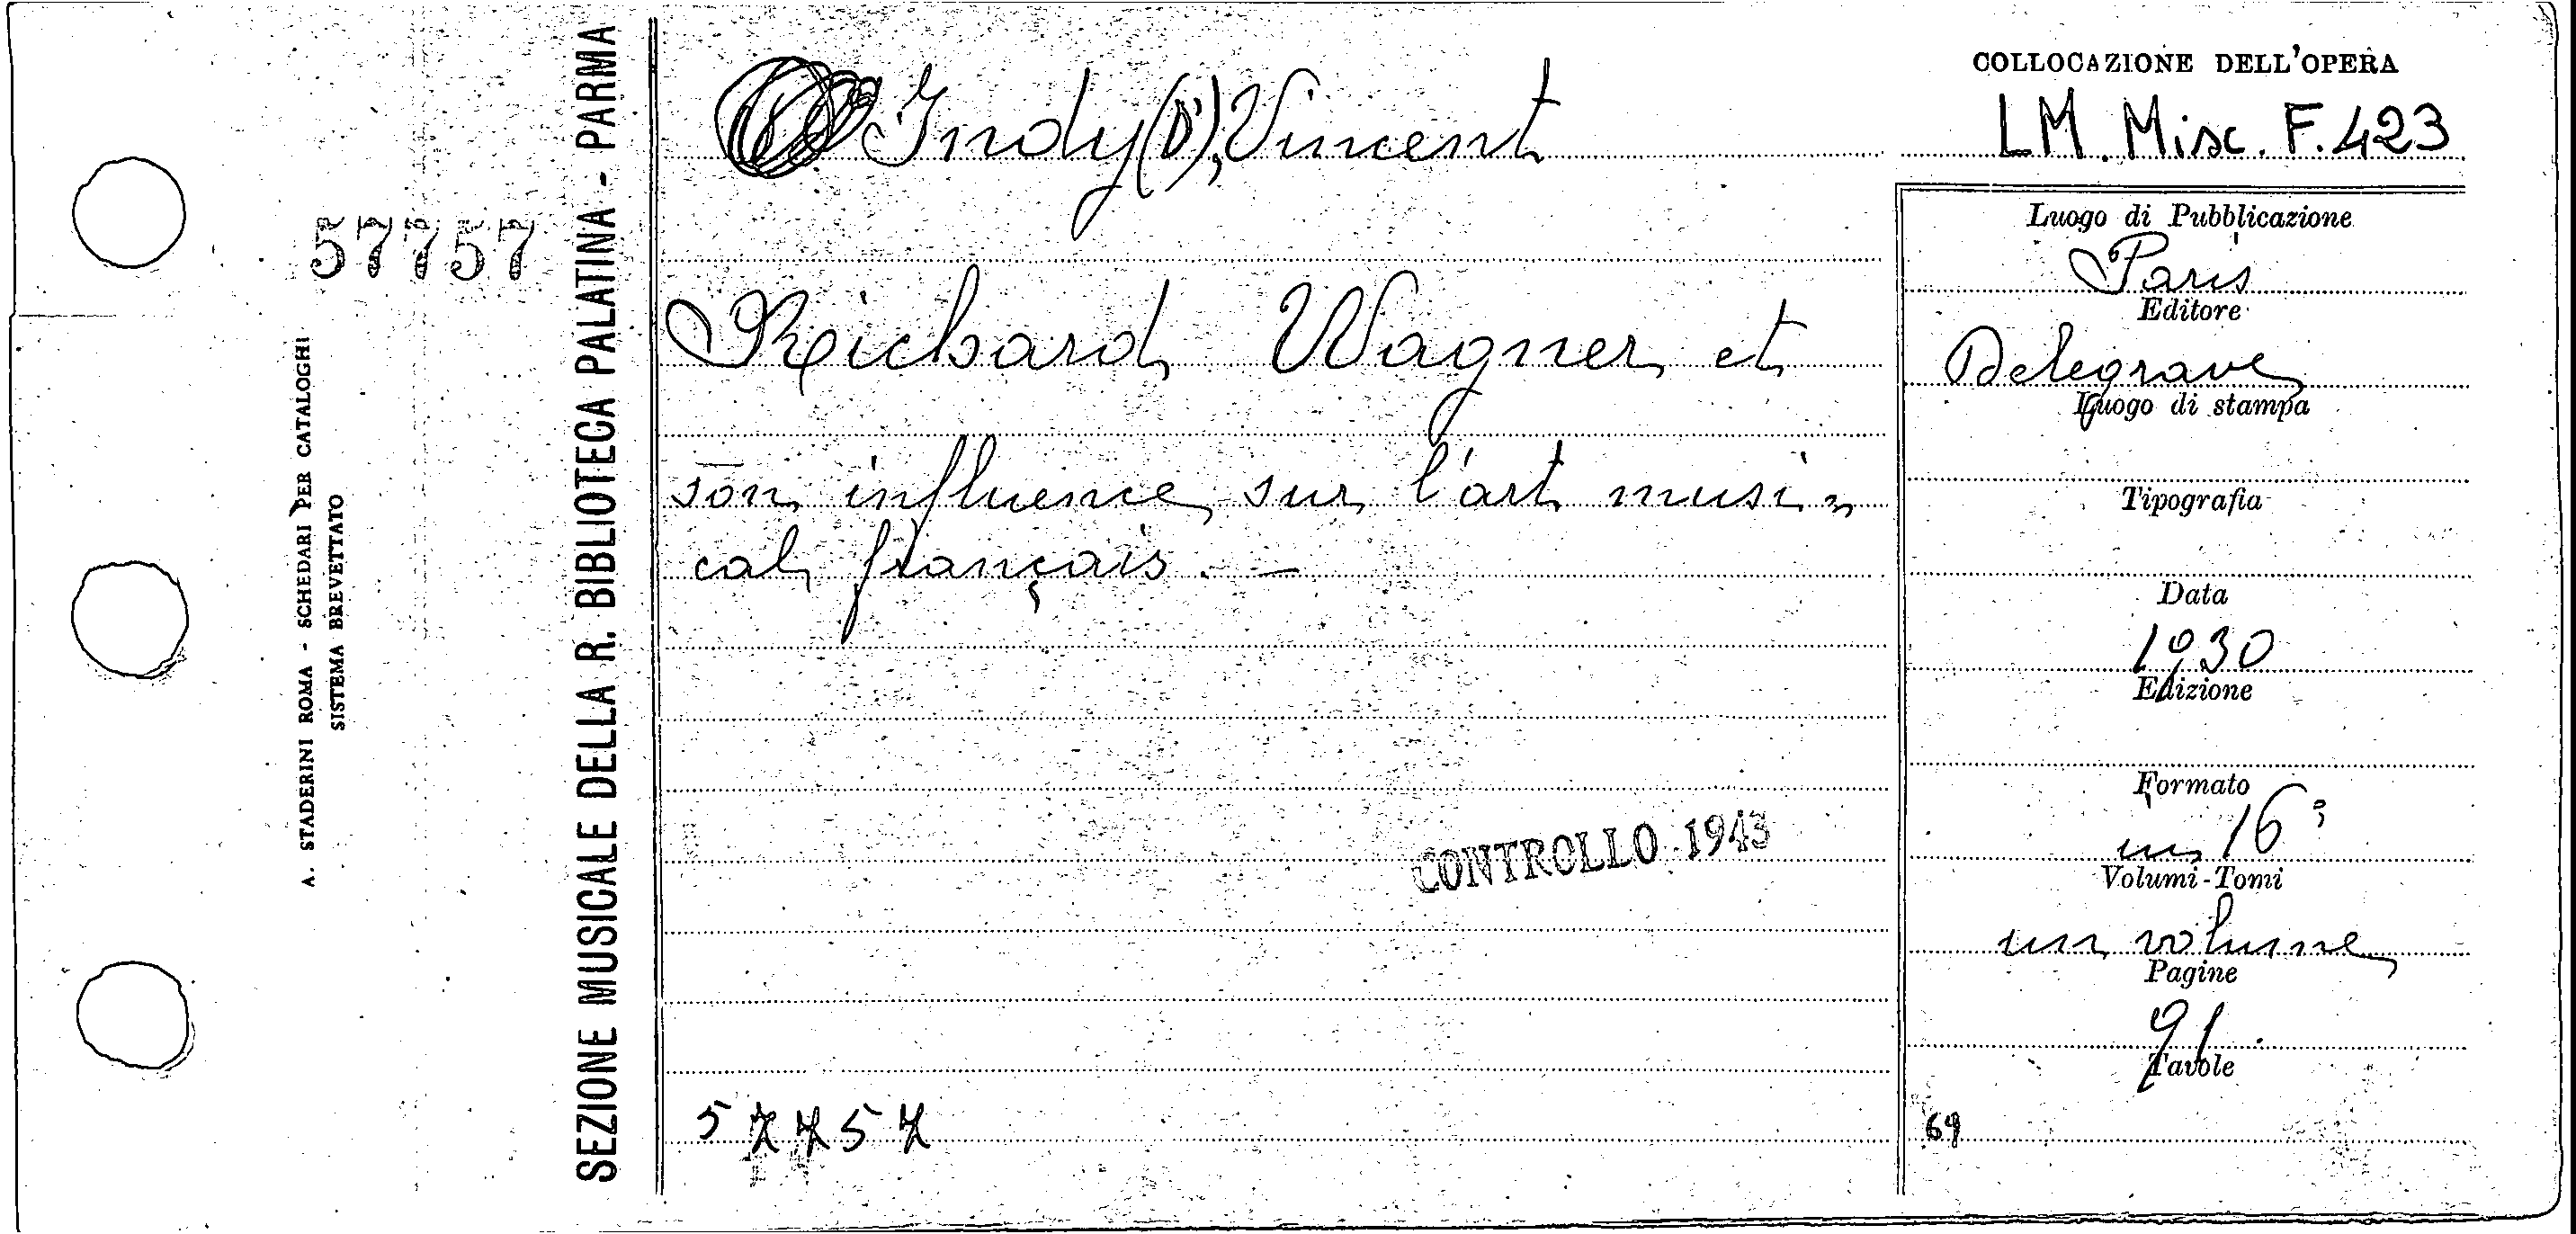 57757
A. STADERINI ROMA - SCHEDARI PER CATALOGHI
SISTEMA BREVETTATO
SEZIONE MUSICALE DELLA R. BIBLIOTECA PALATINA - PARMA
Indy (D'), Vincent
Richard Wagner et
son influence sur l'art musi-
cal français. —
CONTROLLO 1943
57757
COLLOCAZIONE DELL'OPERA
LM. Misc. F. 423
Luogo di Pubblicazione
Paris
Editore
Delegrave
Luogo di stampa
Tipografia
Data
1930
Edizione
Formato
in 16°
Volumi-Tomi
un volume
Pagine
91
Tavole
69